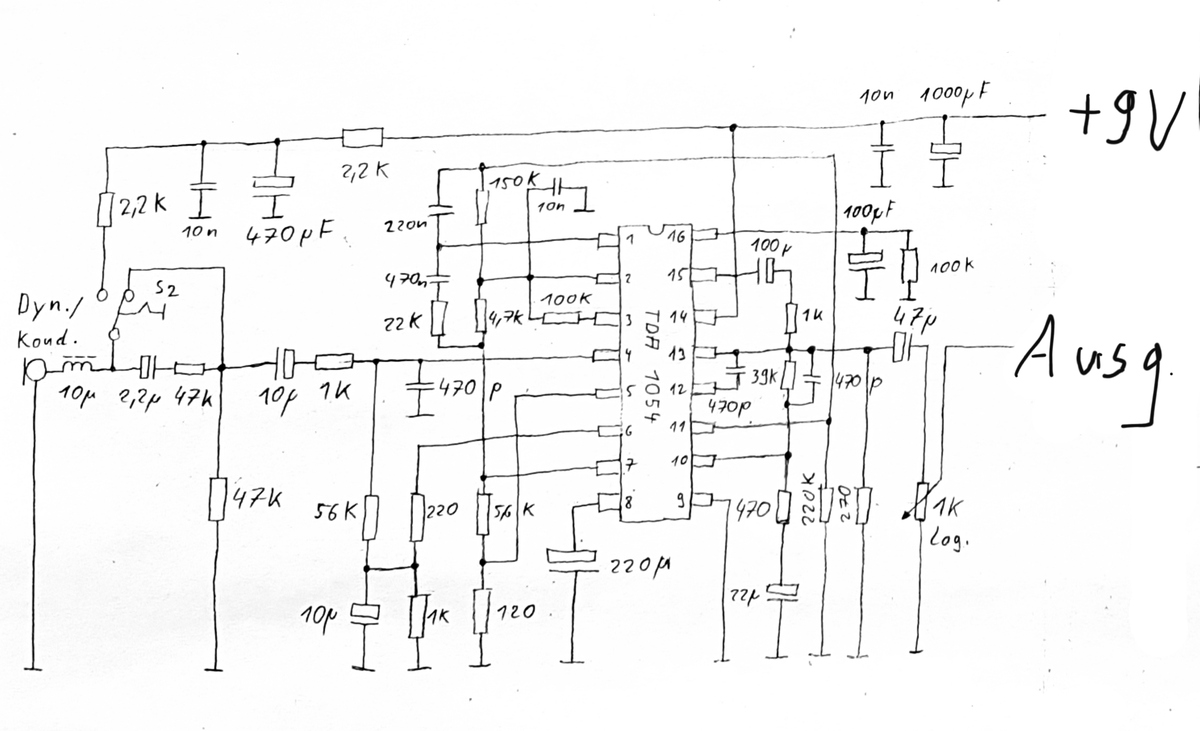 10n 1000µF
+9V
2,2K
2,2K
10n
470µF
150K
10n
220n
470n
22K
4,7K
100K
S2
Dyn./
Kond.
10µ
2,2µ
47K
10µ
1K
470p
47K
56K
220
5,6K
10µ
1K
120
220µ
1
2
3
4
5
6
7
8
TDA 1054
16
15
14
13
12
11
10
9
100µF
100K
100µ
1K
47µ
39K
470p
470p
Ausg.
470
220K
270
22µ
1K
Log.